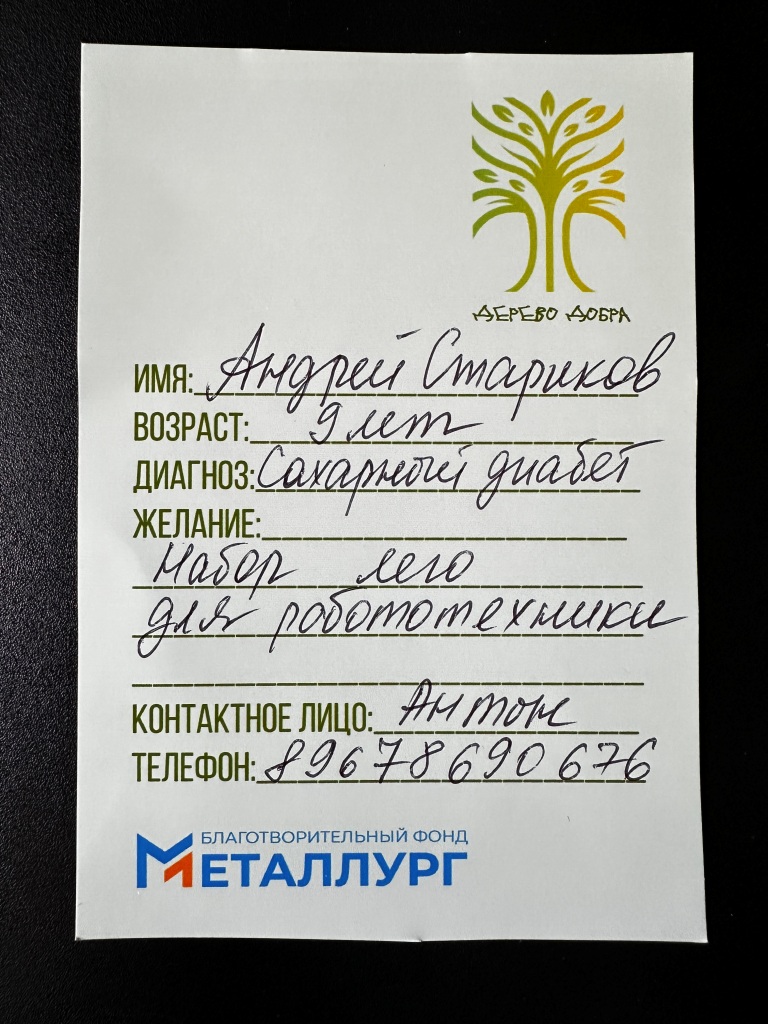 ДЕРЕВО ДОБРА
ИМЯ: Андрей Стариков
ВОЗРАСТ: 9 лет
ДИАГНОЗ: Сахарный диабет
ЖЕЛАНИЕ:
Набор лего
для робототехники
КОНТАКТНОЕ ЛИЦО: Антон
ТЕЛЕФОН: 89678690676
БЛАГОТВОРИТЕЛЬНЫЙ ФОНД
МЕТАЛЛУРГ